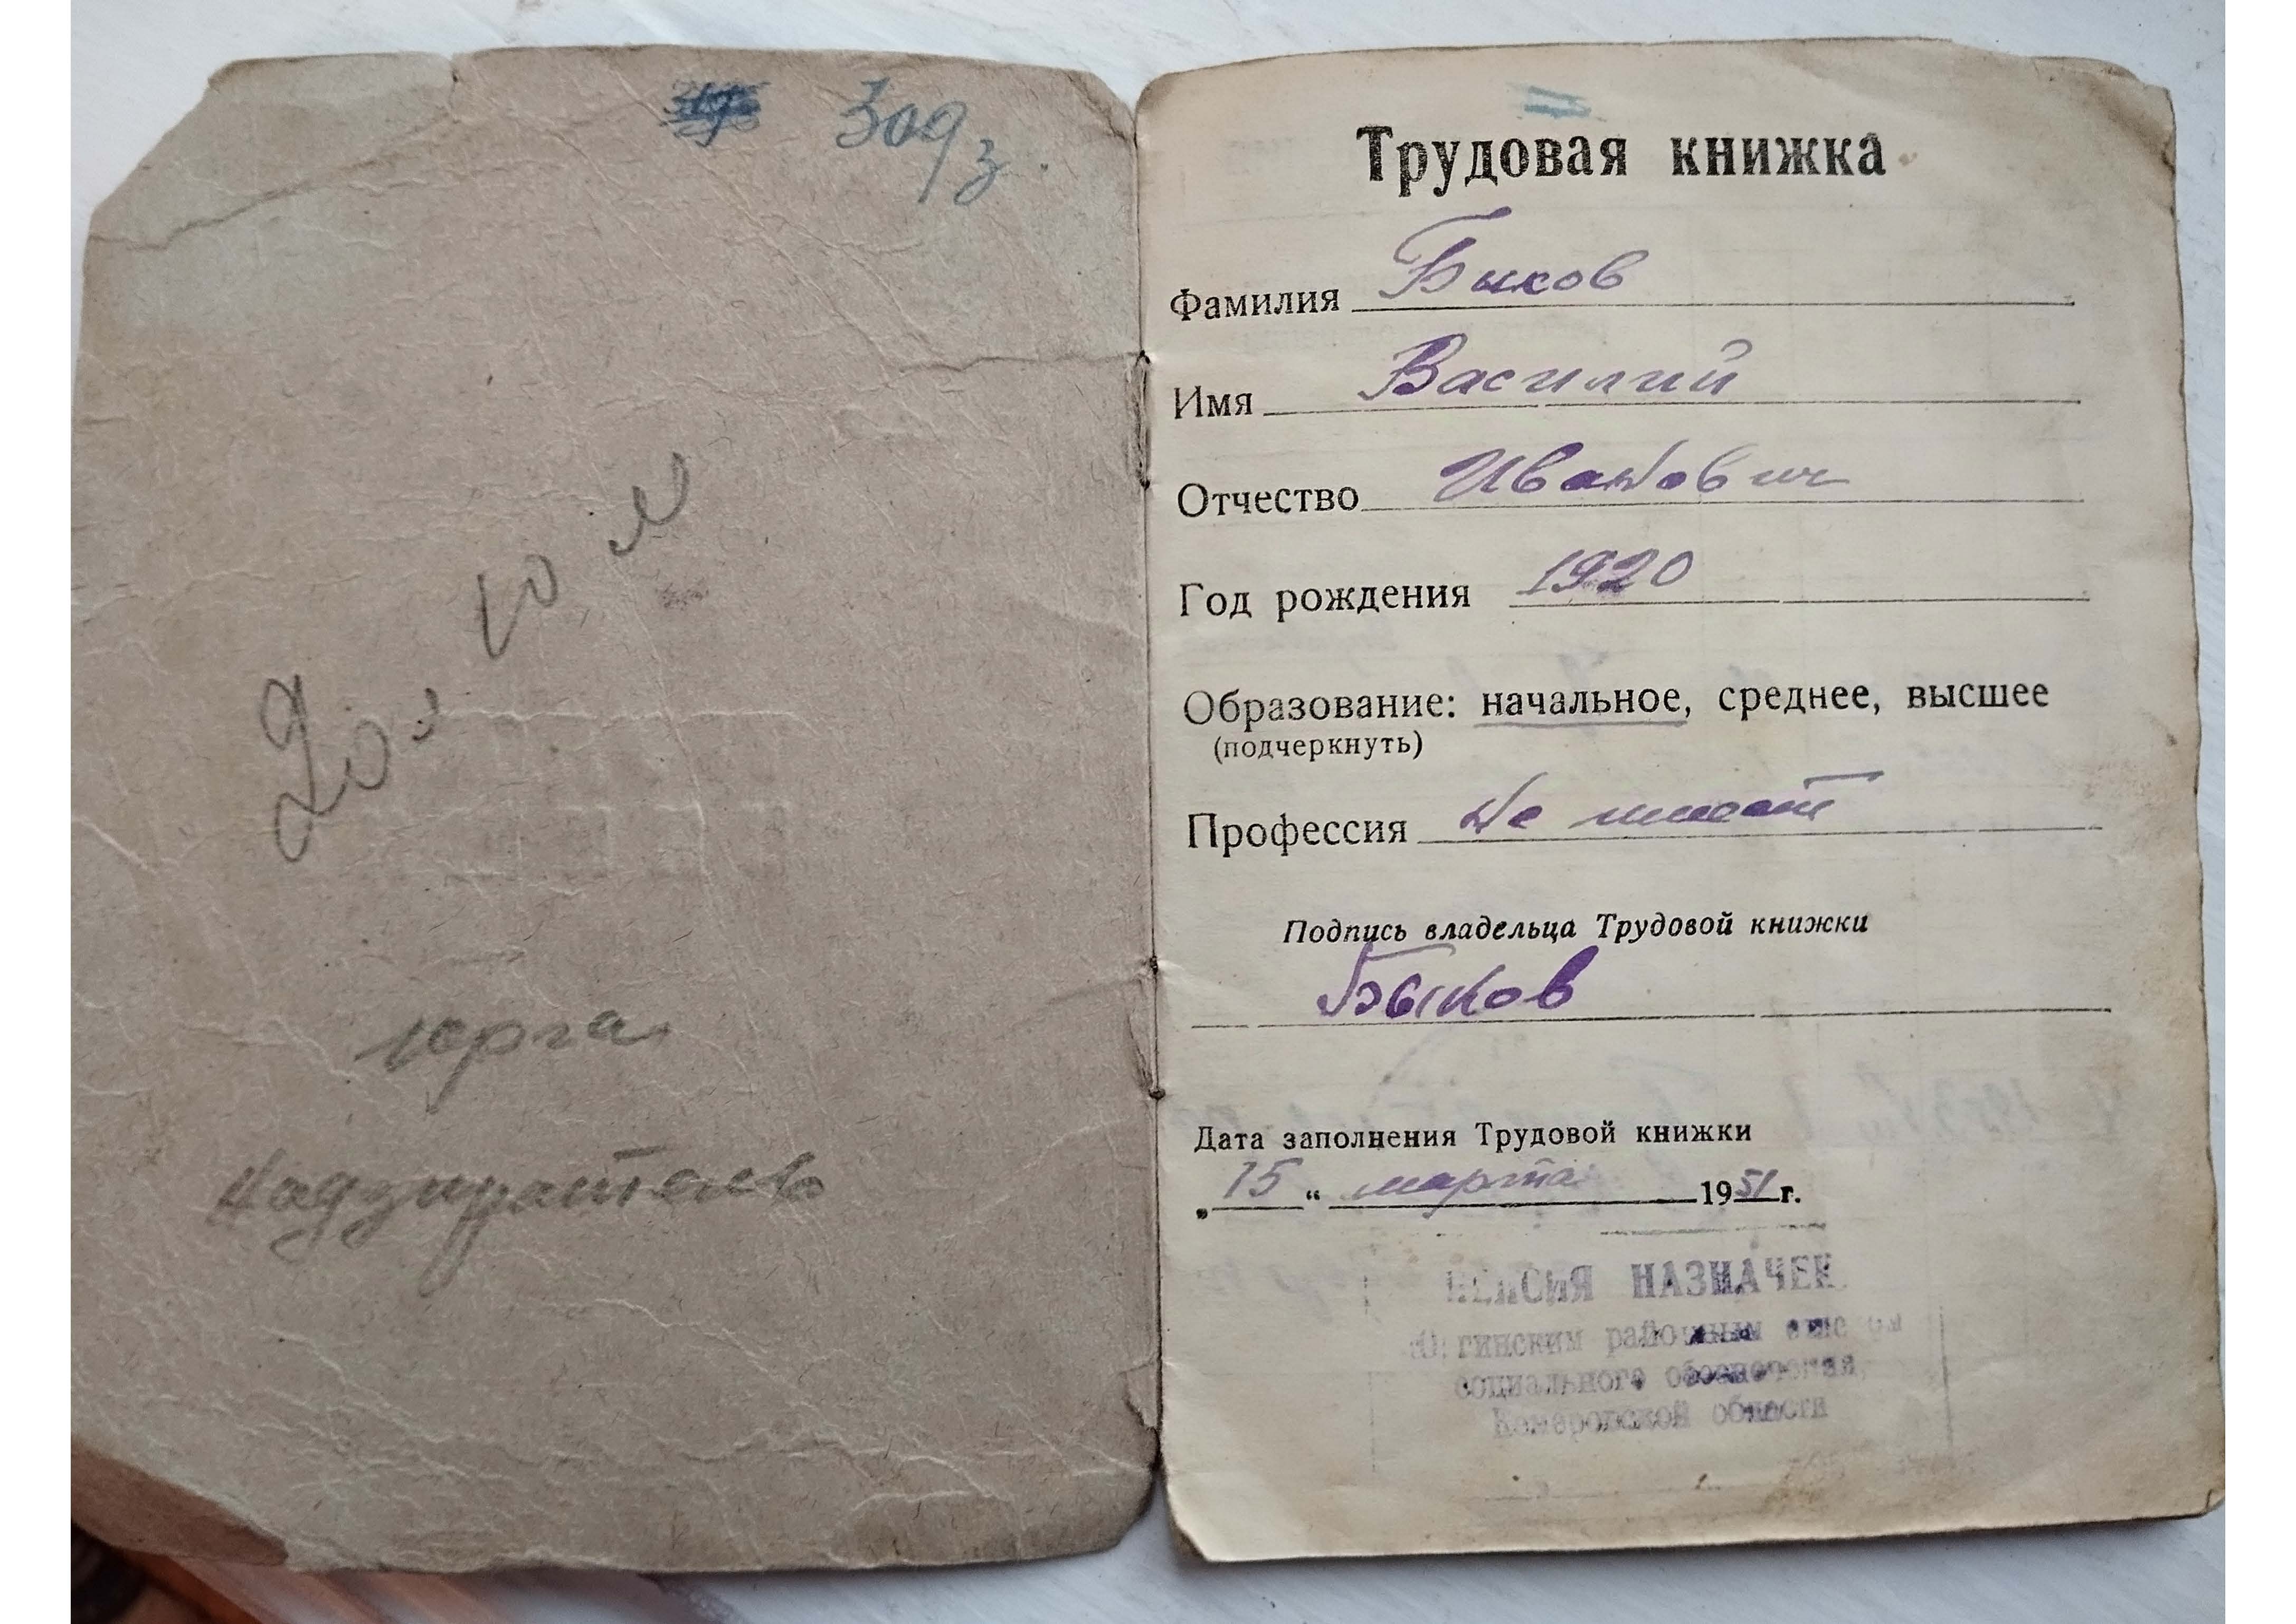 309 з.
Юрга
Надзиратель
Трудовая книжка
Фамилия Быков
Имя Василий
Отчество Иванович
Год рождения 1920
Образование: начальное, среднее, высшее
(подчеркнуть)
Профессия Не имеет
Подпись владельца Трудовой книжки
Быков
Дата заполнения Трудовой книжки
„15“ марта 1951 г.
ПЕНСИЯ НАЗНАЧЕН
Юргинским районным отделом
социального обеспечения,
Кемеровской области